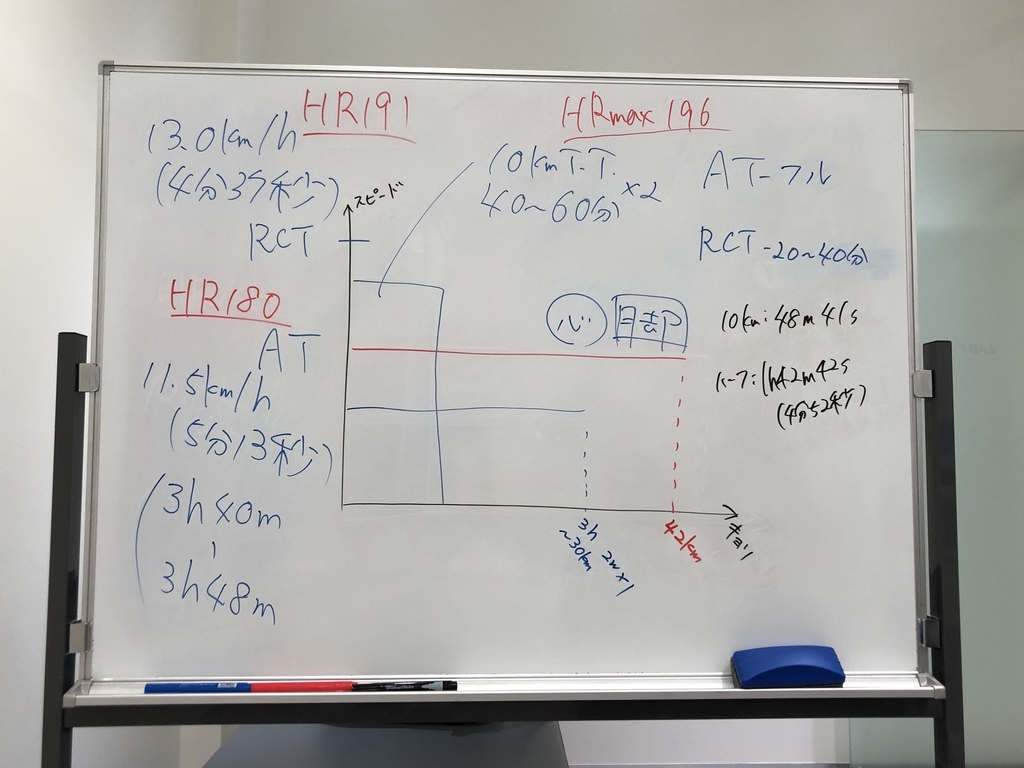 HR191
13.0km/h
(4分37秒)
RCT
HR180
AT
11.5km/h
(5分13秒)
3h40m
~
3h48m
スピード
HRmax 196
10kmT.T.
40~60分 ×2
AT-フル
RCT-20~40分
心
10km: 48m41s
ハーフ: 1h42m42s
(4分52秒)
3h
~30km
2w×1
42km
キョリ